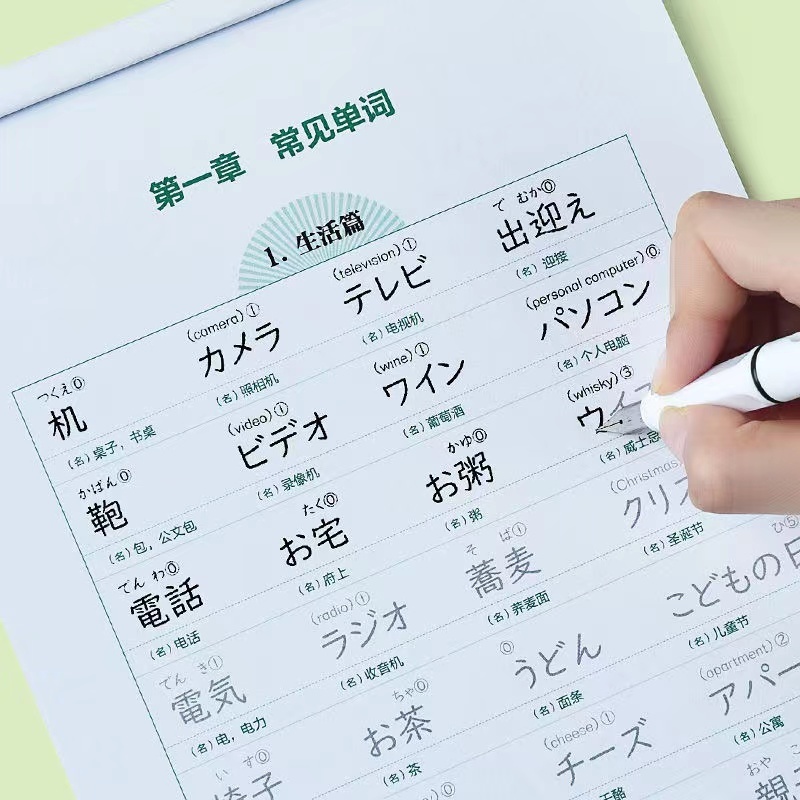 第一章 常见单词
1. 生活篇
つくえ⓪ (camera)① (television)① で むか⓪
机 カメラ テレビ 出迎え
(名)桌子，书桌 (名)照相机 (名)电视机 (名)迎接
かばん⓪ (video)① (wine)① (personal computer)⓪
鞄 ビデオ ワイン パソコン
(名)包，公文包 (名)录像机 (名)葡萄酒 (名)个人电脑
でん わ⓪ たく⓪ かゆ⓪ (whisky)③
電話 お宅 お粥
(名)电话 (名)府上 (名)粥 (名)威士忌
でん き① (radio)① そ ば① (Christmas)
電気 ラジオ 蕎麦 クリス
(名)电，电力 (名)收音机 (名)荞麦面 (名)圣诞节
い す⓪ ちゃ⓪ ⓪ ひ⑤
椅子 お茶 うどん こどもの日
(名)茶 (名)面条 (名)儿童节
(cheese)① (apartment)②
チーズ アパー
(名)公寓
おや こ
親